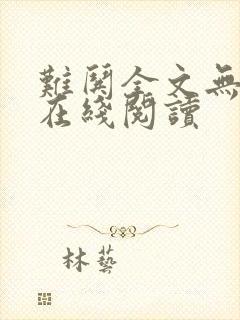 難關全文無
在綫閱讀
林藝